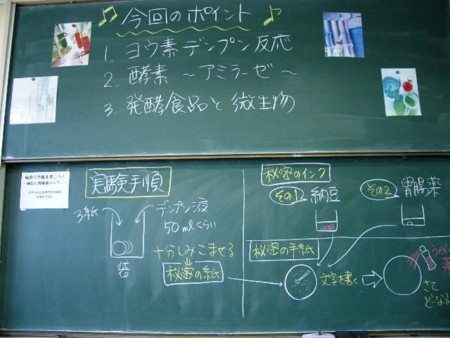 今回のポイント
1. ヨウ素デンプン反応
2. 酵素 ~アミラーゼ~
3. 発酵食品と微生物
実験手順
ろ紙
デンプン液
50mlくらい
十分しみこませる
秘密の紙
秘密のインク
その1 納豆
その2 胃腸薬
秘密の手紙
文字を書く
うがい
さて
どなる